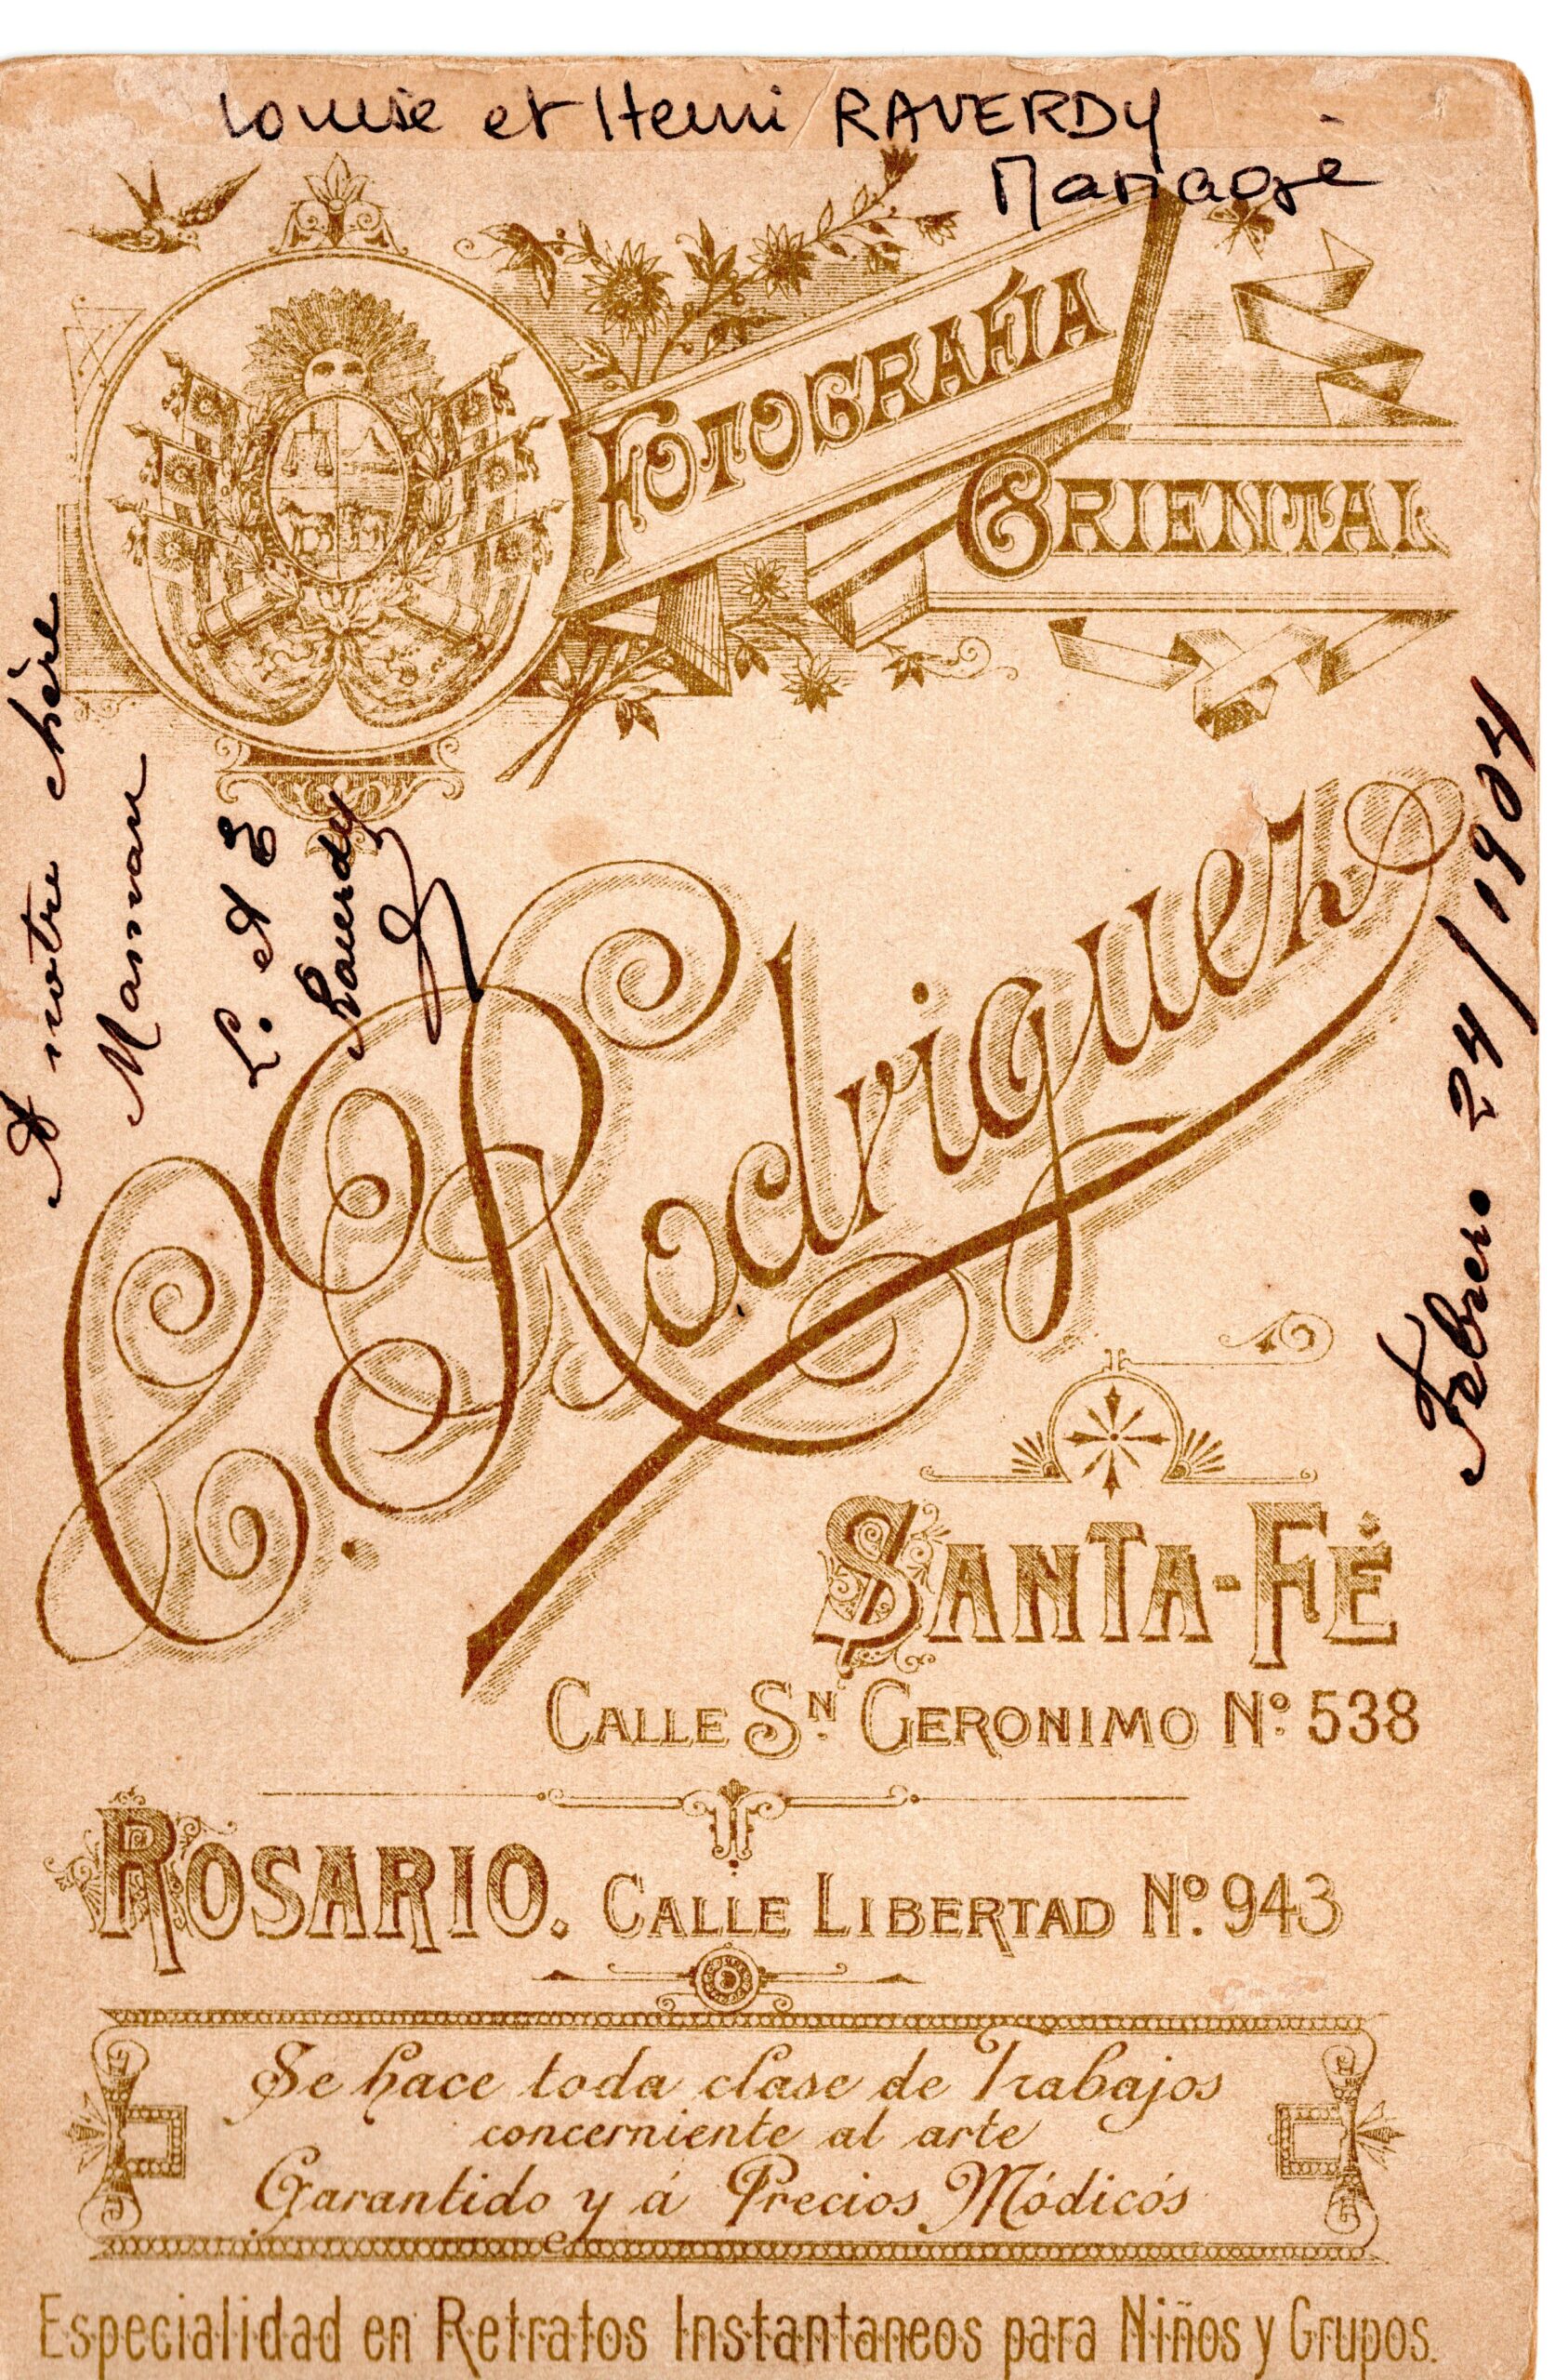 Louise et Henri RAVERDY
Mariage
FOTOGRAFÍA
ORIENTAL
A notre chère
Maman
L. et E
Raverdy
Febrero 24/1904
C. Rodriguez
SANTA-FÉ
CALLE Sn. GERONIMO Nº 538
ROSARIO. CALLE LIBERTAD Nº 943
Se hace toda clase de Trabajos
concerniente al arte
Garantido y á Precios Módicós
Especialidad en Retratos Instantaneos para Niños y Grupos.